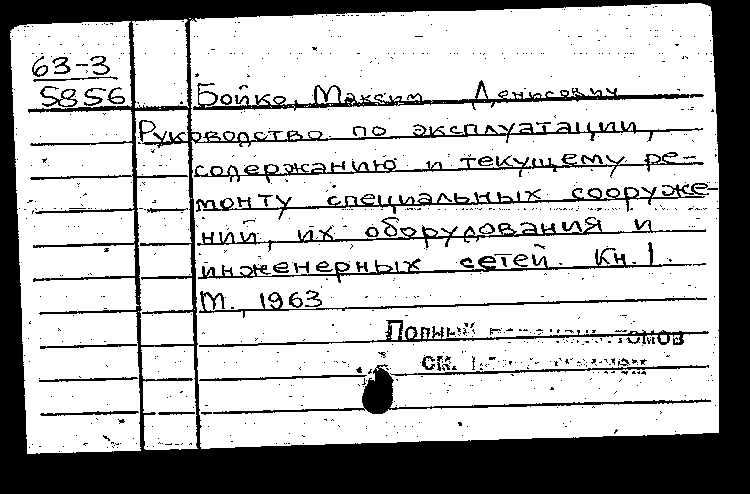 63-3
5856
Бойко, Максим Денисович
Руководство по эксплуатации,
содержанию и текущему ре-
монту специальных сооруже-
ний, их оборудования и
инженерных сетей. Кн. 1.
М., 1963
Полный томов
см.